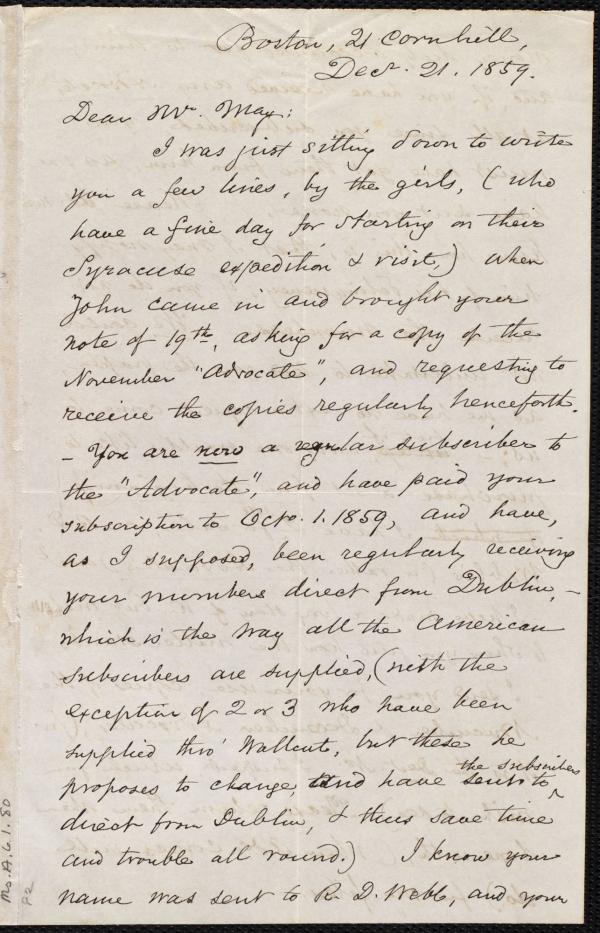 Boston, 21 Cornhill,
Decr. 21. 1859.
Dear Mr. May:
I was just sitting down to write
you a few lines, by the girls, (who
have a fine day for starting on their
Syracuse expedition & visit,) when
John came in and brought your
note of 19th, asking for a copy of the
November "Advocate", and requesting to
receive the copies regularly henceforth.
- You are now a regular subscriber to
the "Advocate", and have paid your
subscription to Octo. 1. 1859, and have,
as I supposed, been regularly receiving
your numbers direct from Dublin, -
which is the way all the American
subscribers are supplied, (with the
exception of 2 or 3 who have been
supplied thro' Wallcut, but these he
proposes to change, and have sent to
the subscribers
direct from Dublin, & thus save time
and trouble all round.) I know your
name was sent to R. D. Webb, and your
Ms.A.6.1.80
P2